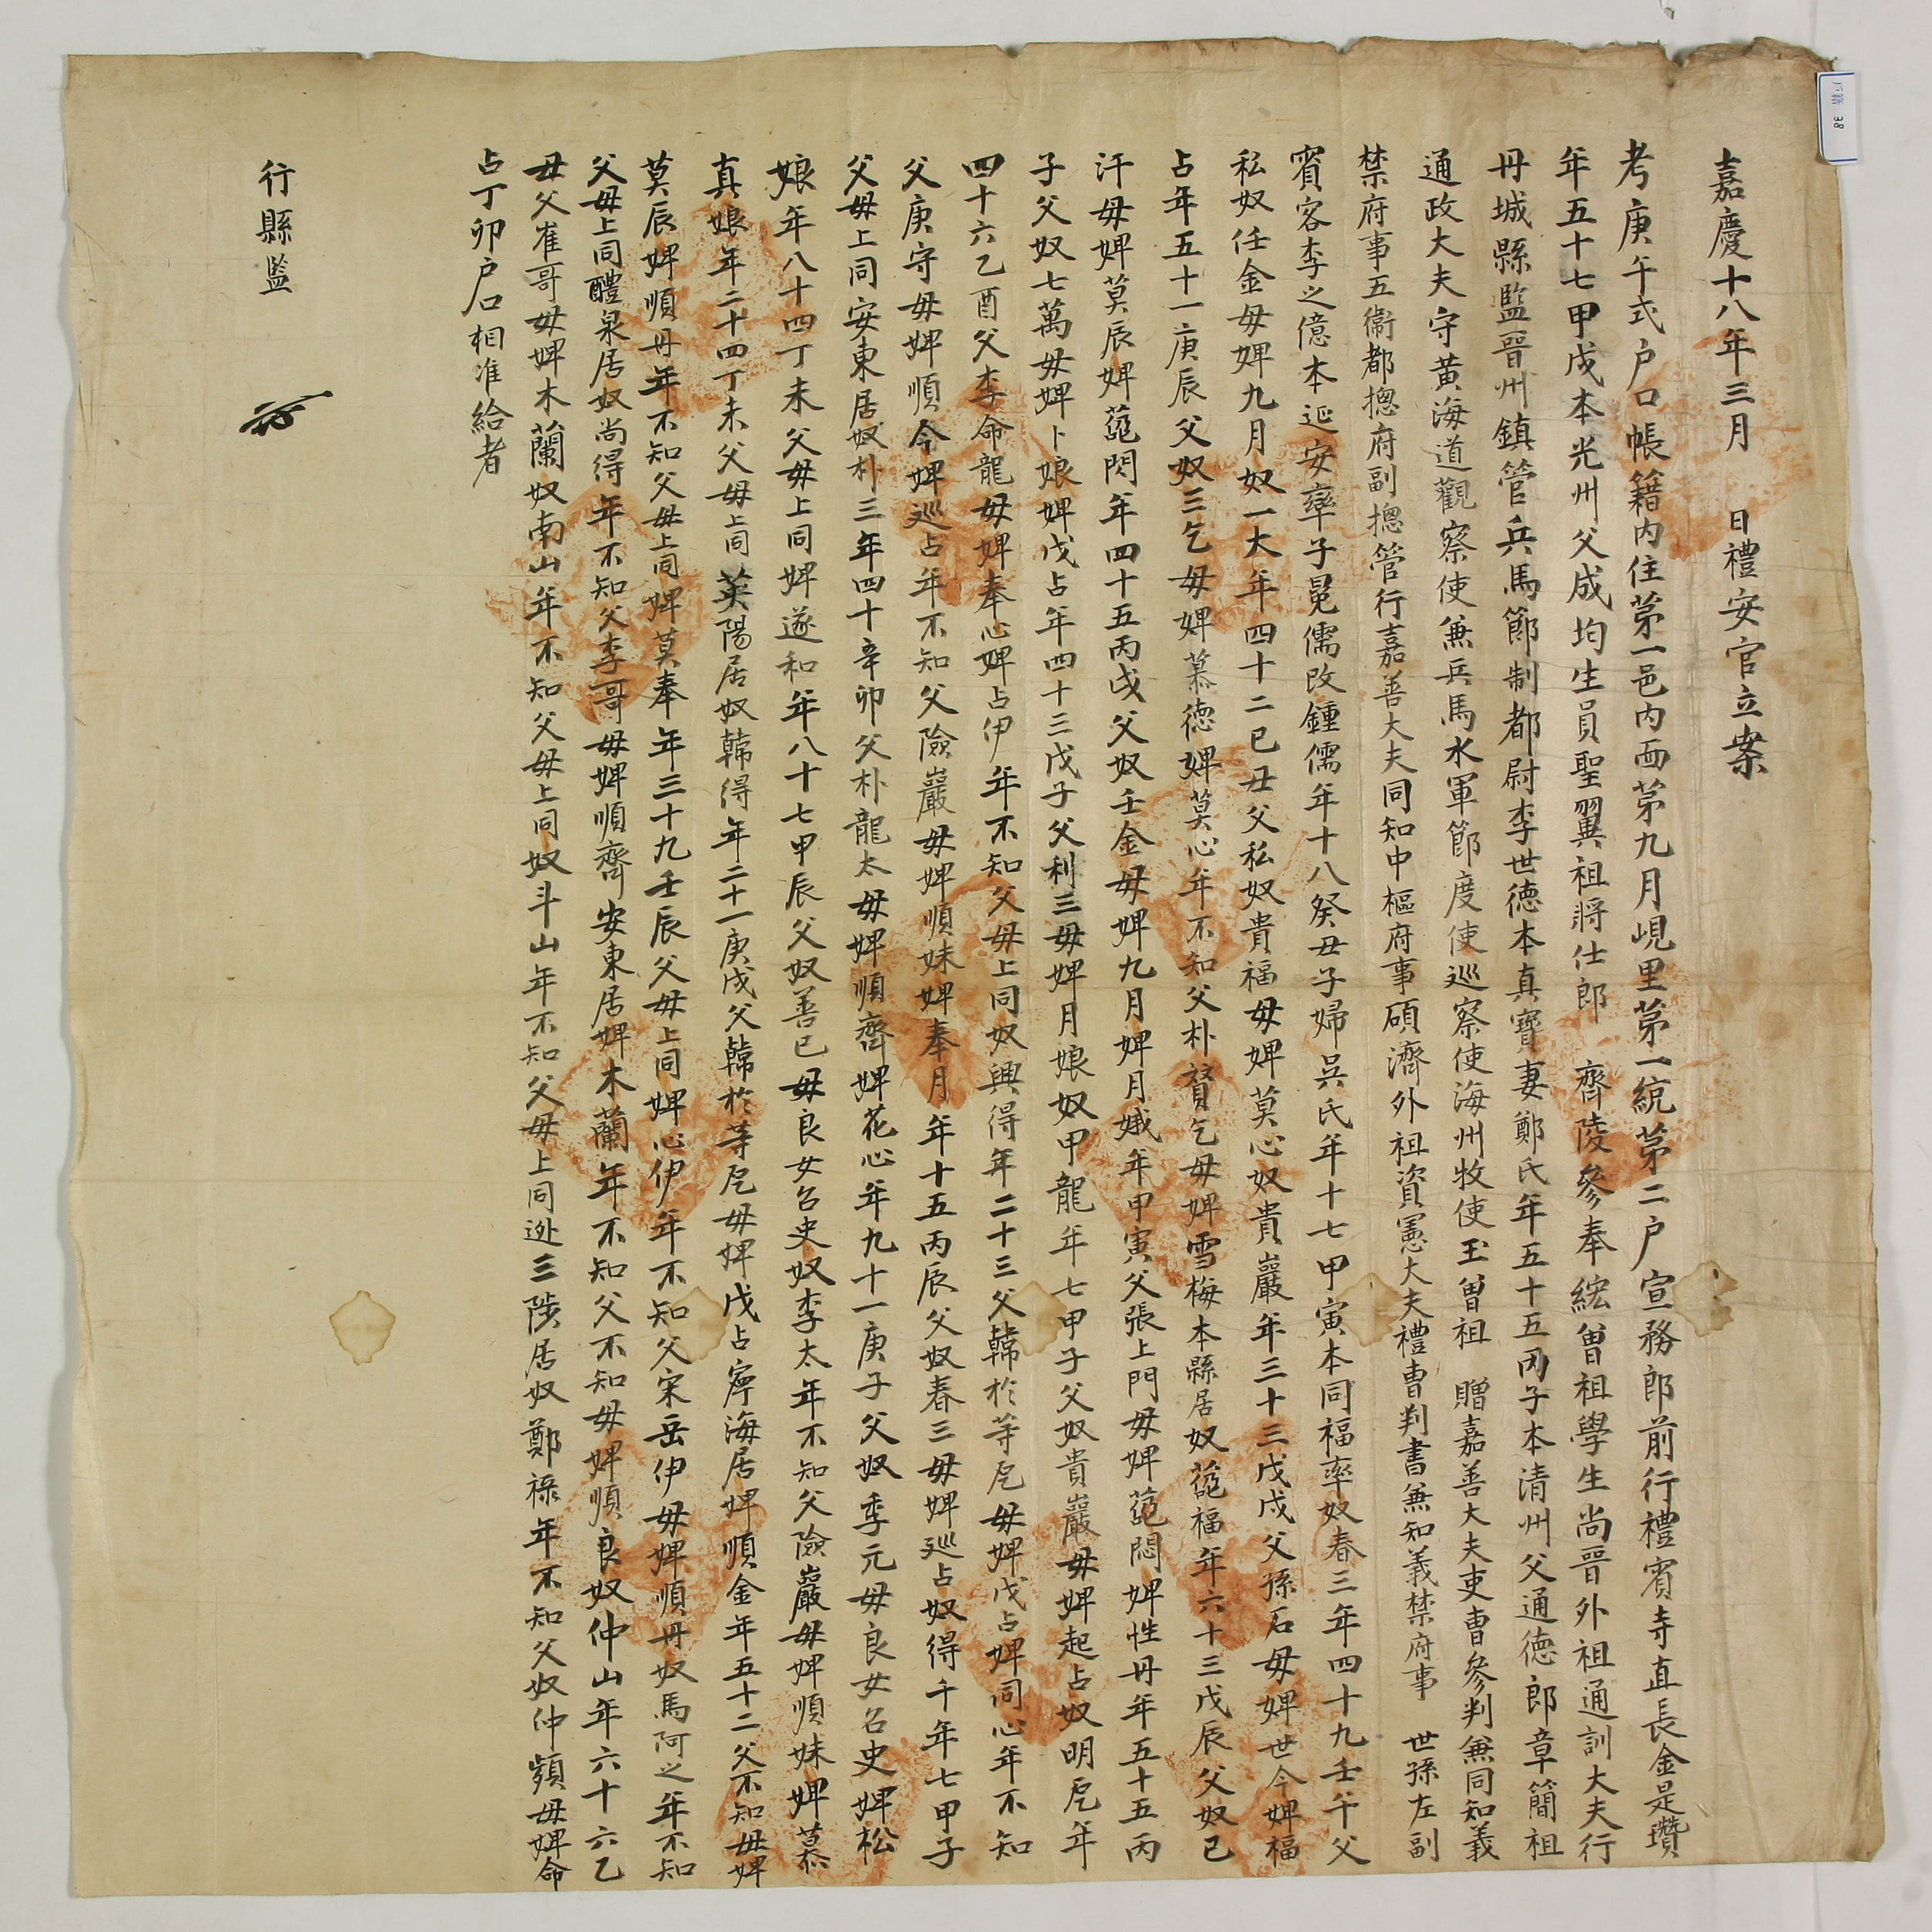 嘉慶十八年三月 日禮安官立案
考庚午式户口帳籍內住第一邑內面第九月峴里第一統第二户宣務郎前行禮賓寺直長金是瓚
年五十七甲戌本光州父成均生員聖翼祖將仕郎 齊陵參奉紘曾祖學生尚晉外祖通訓大夫行
丹城縣監晉州鎮管兵馬節制都尉李世德本真寶妻鄭氏年五十五丙子本清州父通德郎章簡祖
通政大夫守黃海道觀察使兼兵馬水軍節度使巡察使海州牧使玉曾祖 贈嘉善大夫吏曹參判兼同知義
禁府事五衛都摠府副摠管行嘉善大夫同知中樞府事碩濟外祖資憲大夫禮曹判書兼知義禁府事 世孫左副
賓客李之億本延安率子冕儒改鍾儒年十八癸丑子婦吳氏年十七甲寅本同福率奴春三年四十九壬午父
私奴任金母婢九月奴一大年四十二己丑父私奴貴福母婢莫心奴貴巖年三十三戊戌父孫石母婢世今婢福
占年五十一庚辰父奴三乞母婢慕德婢莫心年不知父朴贇乞母婢雪梅本縣居奴葩福年六十三戊辰父奴已
汗母婢莫辰婢葩閃年四十五丙戌父奴壬金母婢九月婢月娥年甲寅父張上門母婢葩悶婢性丹年五十五丙
子父奴七萬母婢卜娘婢戊占年四十三戊子父利三母婢月娘奴甲龍年七甲子父奴貴巖母婢起占奴明巵年
四十六乙酉父李命龍母婢奉心婢占伊年不知父母上同奴興得年二十三父韓於等巵母婢戊占婢同心年不知
父庚守母婢順今婢巡占年不知父險巖母婢順妹婢奉月年十五丙辰父奴春三母婢巡占奴得千年七甲子
父母上同安東居奴朴三年四十辛卯父朴龍太母婢順齊婢花心年九十一庚子父奴季元母良女召史婢松
娘年八十四丁未父母上同婢遂和年八十七甲辰父奴善已母良女召史奴李太年不知父險巖母婢順妹婢慕
真娘年二十四丁未父母上同英陽居奴韓得年二十一庚戌父韓於等巵母婢戊占寧海居婢順金年五十二父不知母婢
莫辰婢順丹年不知父母上同婢莫奉年三十九壬辰父母上同婢心伊年不知父宋岳伊母婢順丹奴馬阿之年不知
父母上同醴泉居奴尚得年不知父李哥母婢順齊安東居婢木蘭年不知父不知母婢順良奴仲山年六十六乙
丑父崔哥母婢木蘭奴南山年不知父母上同奴斗山年不知父母上同逃三陟居奴鄭祿年不知父奴仲嬪母婢命
占丁卯户口相准給者
行縣監
户籍 38